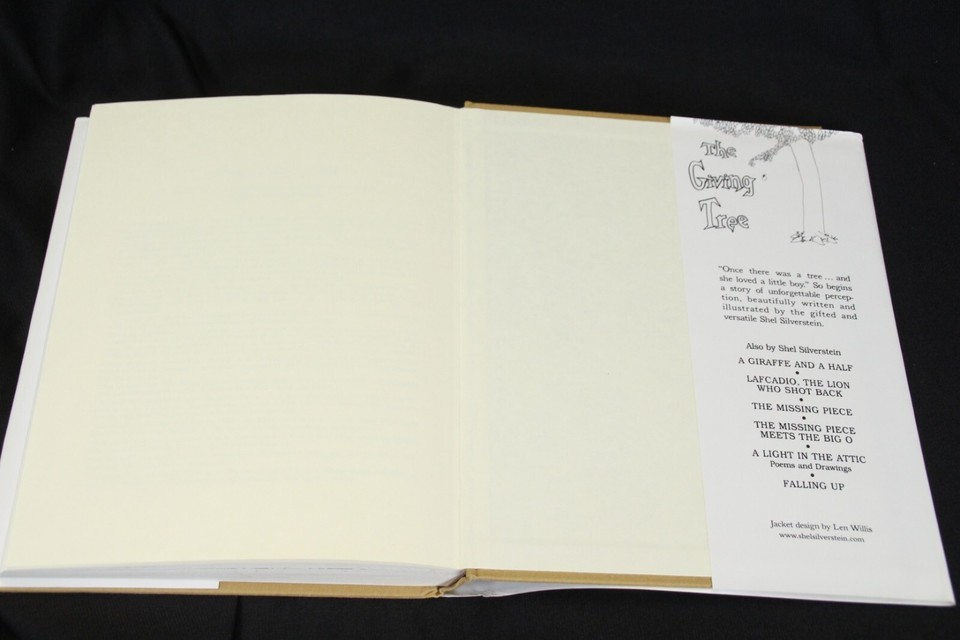 The
Giving
Tree
"Once there was a tree ... and
she loved a little boy." So begins
a story of unforgettable percep-
tion, beautifully written and
illustrated by the gifted and
versatile Shel Silverstein.
Also by Shel Silverstein
A GIRAFFE AND A HALF
•
LAFCADIO, THE LION
WHO SHOT BACK
•
THE MISSING PIECE
•
THE MISSING PIECE
MEETS THE BIG O
•
A LIGHT IN THE ATTIC
Poems and Drawings
•
FALLING UP
Jacket design by Len Willis
www.shelsilverstein.com